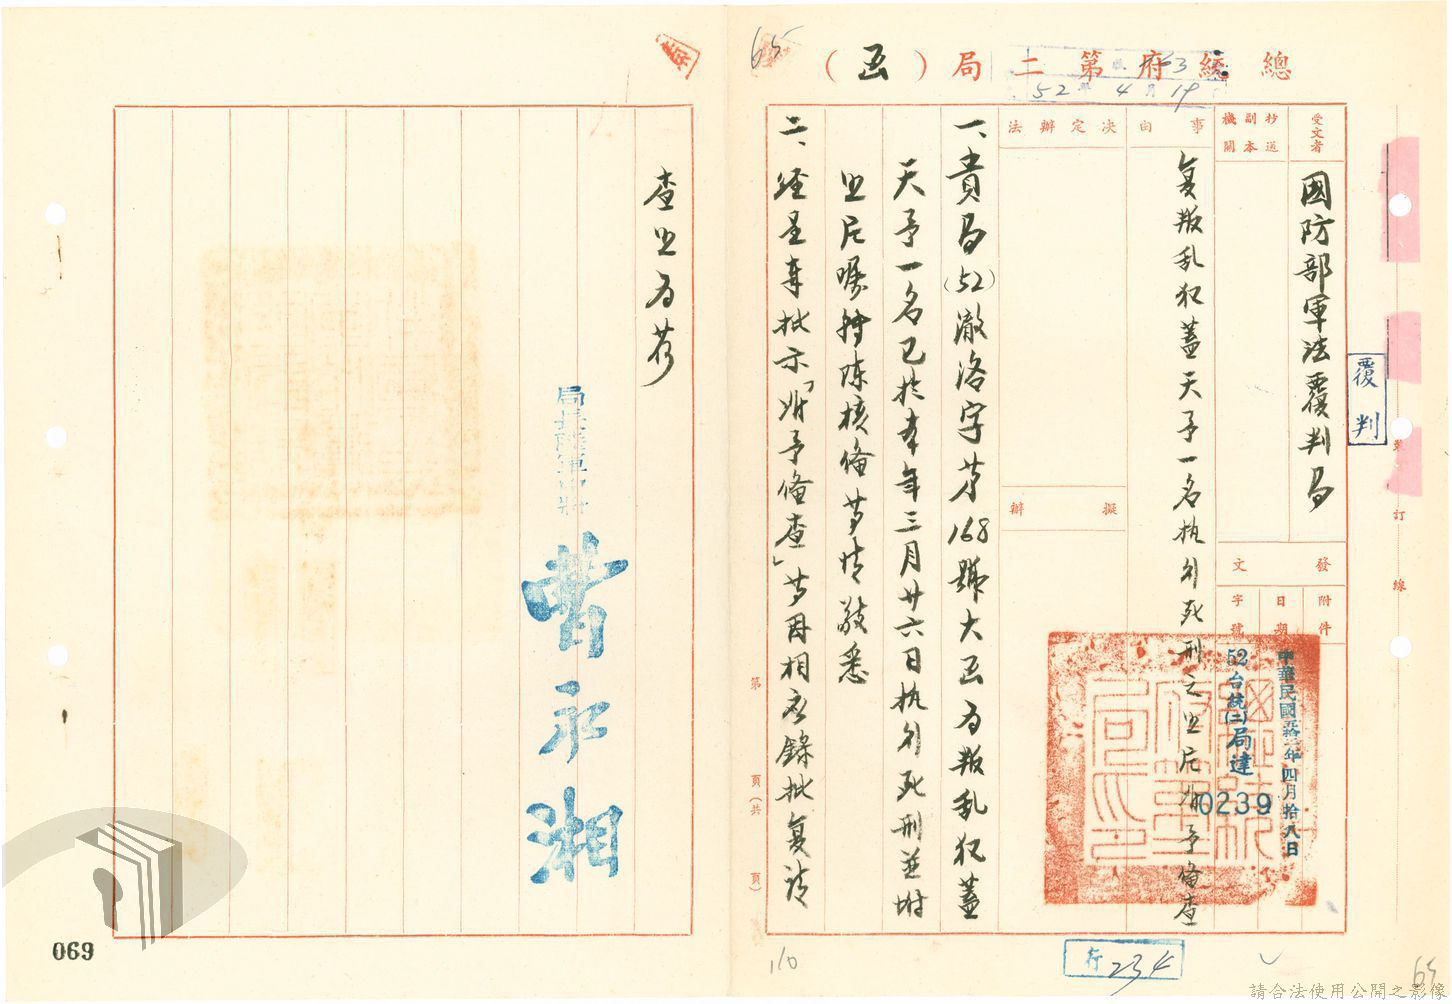 總統府第二局(函)
受文者
國防部軍法覆判局
抄送
副本
機關
發文
附件
日期
字號
中華民國五十二年四月拾八日
52台統(二)局達
0239
事由
复叛乱犯蓋天予一名执行死刑之照片准予俻查
決定辦法
擬辦
一、貴局(52)澈洛字第168號大函为叛乱犯蓋
天予一名已於本年三月廿六日执行死刑並附
照片囑轉陈核俻等情敬悉
二、经呈奉批示「准予俻查」等因相应錄批复请
查照为荷
局長陸軍中將
曹永湘
覆判
裝
訂
線
第
頁(共
頁)
52 4月19
65
行 234
110
65
069
請合法使用公開之影像